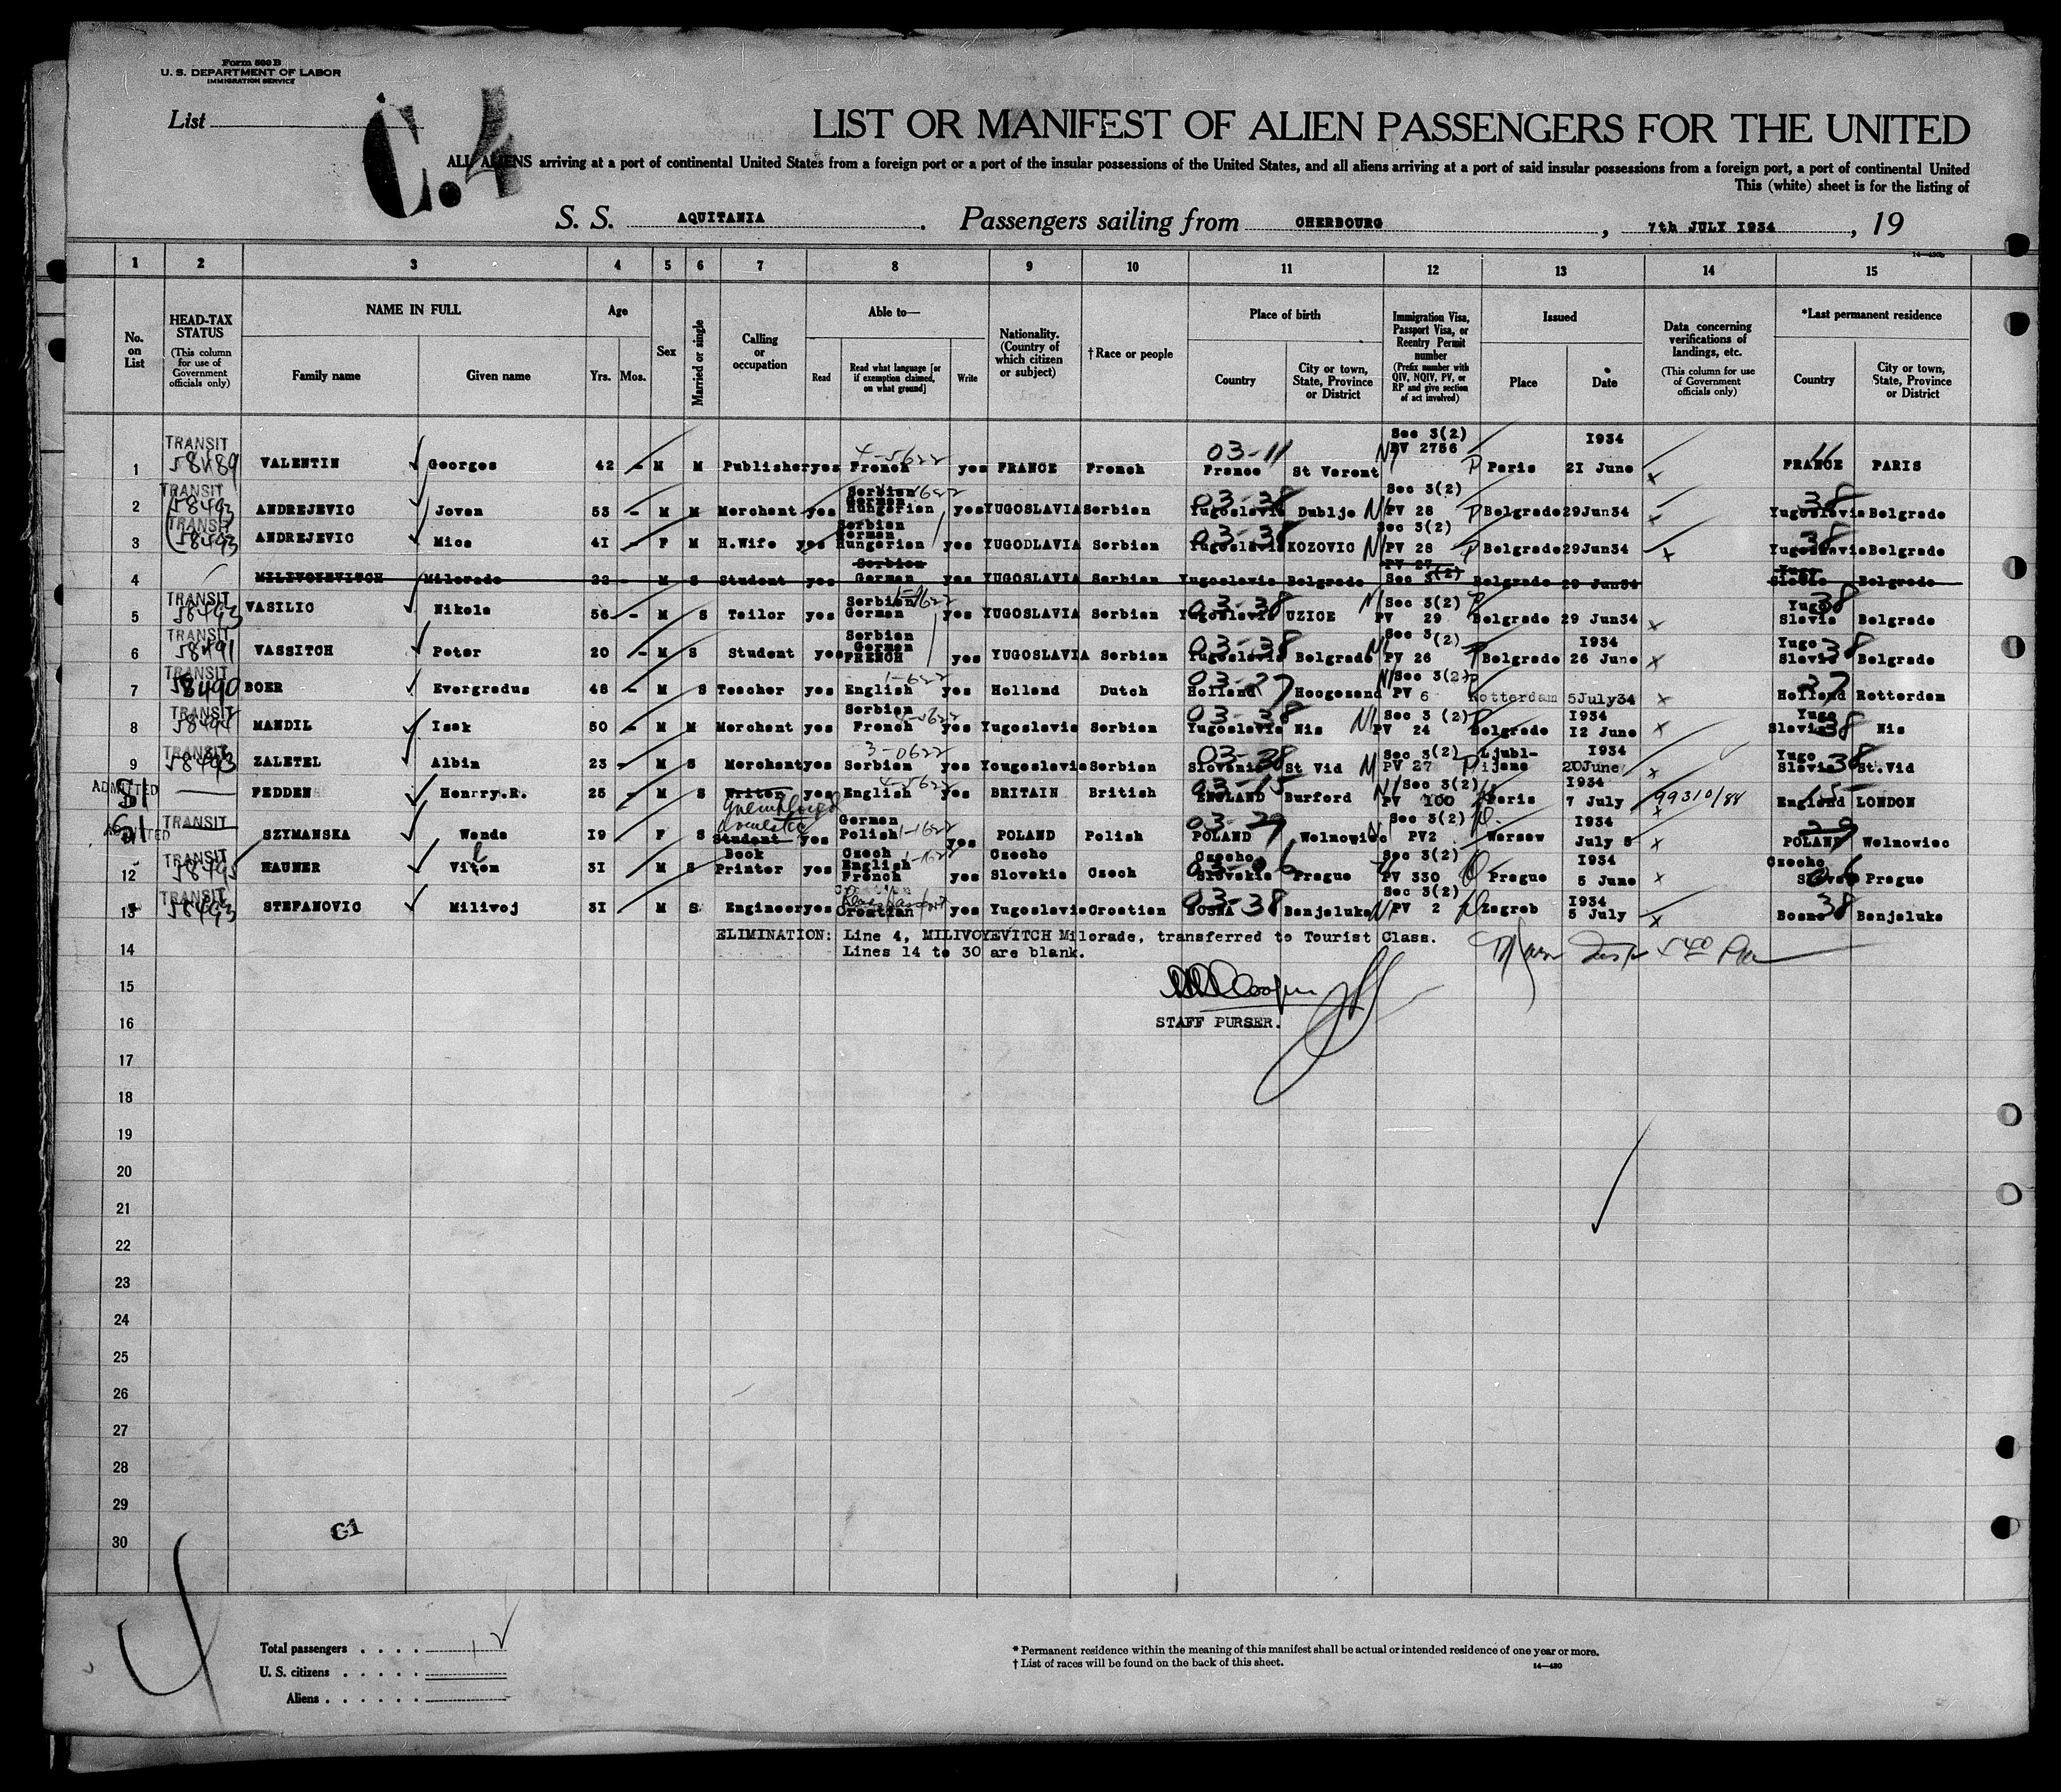 Form 500 B
U. S. DEPARTMENT OF LABOR
IMMIGRATION SERVICE
List
C.4
LIST OR MANIFEST OF ALIEN PASSENGERS FOR THE UNITED
ALL ALIENS arriving at a port of continental United States from a foreign port or a port of the insular possessions of the United States, and all aliens arriving at a port of said insular possessions from a foreign port, a port of continental United
This (white) sheet is for the listing of
S. S. AQUITANIA. Passengers sailing from CHERBOURG, 7th JULY 1934, 19
1 2 3 4 5 6 7 8 9 10 11 12 13 14 15
No. on List
HEAD-TAX STATUS (This column for use of Government officials only)
NAME IN FULL
Family name Given name
Age
Yrs. Mos.
Sex
Married or single
Calling or occupation
Able to—
Read Read what language [or if exemption claimed, on what ground] Write
Nationality. (Country of which citizen or subject)
†Race or people
Place of birth
Country City or town, State, Province or District
Immigration Visa, Passport Visa, or Reentry Permit number (Prefix number with QIV, NQIV, PV, or RP and give section of act involved)
Issued
Place Date
Data concerning verifications of landings, etc. (This column for use of Government officials only)
*Last permanent residence
Country City or town, State, Province or District
1 TRANSIT 58489 VALENTIN Georges 42 - M M Publisher yes French 4-5622 yes FRANCE French 03-11 France St Verent Sec 3(2) PV 2756 Paris 1934 21 June FRANCE PARIS
2 TRANSIT 58493 ANDREJEVIC Jovan 53 - M M Merchant yes Serbian German Hungarian yes YUGOSLAVIA Serbian 03-38 Yugoslavia Dublje Sec 3(2) PV 28 Belgrade 29Jun34 38 Yugoslavia Belgrade
3 TRANSIT 58493 ANDREJEVIC Mica 41 - F M H.Wife yes Serbian German Hungarian yes YUGODLAVIA Serbian 03-38 Yugoslavia KOZOVIC Sec 3(2) PV 28 Belgrade 29Jun34 38 Yugoslavia Belgrade
4 MILIVOYEVITCH Milorade 22 - M S Student yes Serbian German yes YUGOSLAVIA Serbian Yugoslavia Belgrade PV 27 Sec 3(2) Belgrade 29 Jun34 Yugo Slavia Belgrade
5 TRANSIT 58493 VASILIC Nikola 56 - M S Tailor yes Serbian German yes YUGOSLAVIA Serbian 03-38 Yugoslavia UZICE Sec 3(2) PV 29 Belgrade 29 Jun34 Yugo 38 Slavia Belgrade
6 TRANSIT 58491 VASSITCH Peter 20 - M S Student yes Serbian German FRENCH yes YUGOSLAVIA Serbian 03-38 Yugoslavia Belgrade Sec 3(2) PV 26 Belgrade 1934 26 June Yugo 38 Slavia Belgrade
7 TRANSIT 58490 BOER Evergradus 48 - M S Teacher yes English 1-622 yes Holland Dutch 03-27 Holland Hoogesand Sec 3(2) PV 6 Rotterdam 5July34 27 Holland Rotterdam
8 TRANSIT 58494 MANDIL Isak 50 - M M Merchant yes Serbian French yes Yugoslavia Serbian 03-38 Yugoslavia Nis Sec 3 (2) PV 24 Belgrade 1934 12 June Yugo 38 Slavia Nis
9 TRANSIT 58493 ZALETEL Albin 23 - M S Merchant yes Serbian 3-0622 yes Yougoslavia Serbian 03-38 Slovenia St Vid Sec 3(2) PV 27 Ljubl-ijana 1934 20June Yugo 38 Slavia St.Vid
ADMITTED FEDDEN Henrry.R. 25 - M S Writer yes English 4-5622 yes BRITAIN British 03-15 ENGLAND Burford Sec 3(2) PV 100 Paris 1934 7 July 99310/88 15 England LONDON
ADMITTED TRANSIT SZYMANSKA Wanda 19 F S unemployed domestic Student yes German Polish 1-1622 yes POLAND Polish 03-29 POLAND Welnowiec Sec 3(2) PV2 Warsaw 1934 July 5 29 POLAND Welnowiec
12 TRANSIT 58495 HAUNER Vitem 31 M S Book Printer yes Czech English French yes Czecho Slovakia Czech 03-06 Czecho Slovakia Prague Sec 3(2) PV 330 Prague 1934 5 June Czecho 06 Slovak Prague
13 TRANSIT 58493 STEFANOVIC Milivoj 31 M S Engineer yes Croatian yes Yugoslavia Croatian 03-38 BOSNA Banjaluka Sec 3(2) PV 2 Zagreb 1934 5 July 38 Bosna Banjaluka
ELIMINATION: Line 4, MILIVOYEVITCH Milorade, transferred to Tourist Class.
14 Lines 14 to 30 are blank.
15
16 STAFF PURSER.
17
18
19
20
21
22
23
24
25
26
27
28
29
30
G1
Total passengers . . . .
U. S. citizens . . . . .
Aliens . . . . . .
* Permanent residence within the meaning of this manifest shall be actual or intended residence of one year or more.
† List of races will be found on the back of this sheet. 14—430